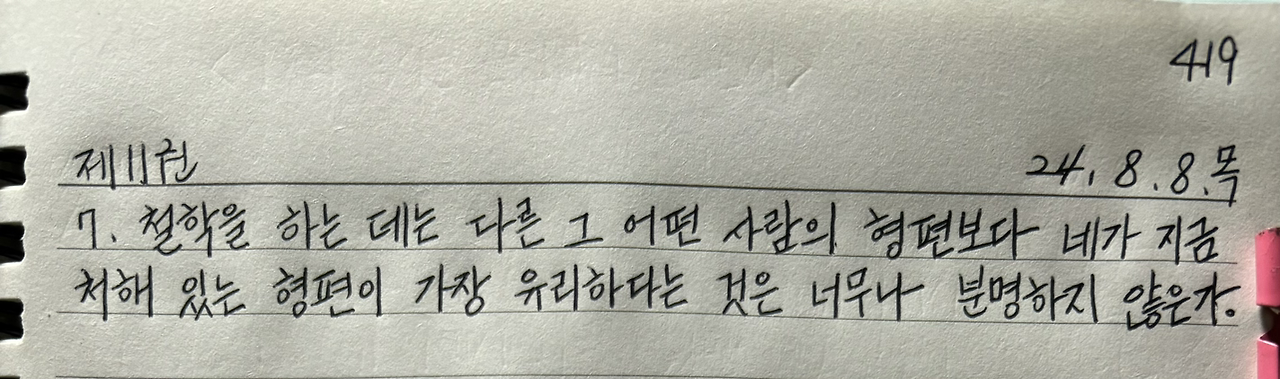 419
제11권 24. 8. 8. 목
7. 철학을 하는 데는 다른 그 어떤 사람의 형편보다 네가 지금
처해 있는 형편이 가장 유리하다는 것은 너무나 분명하지 않은가.